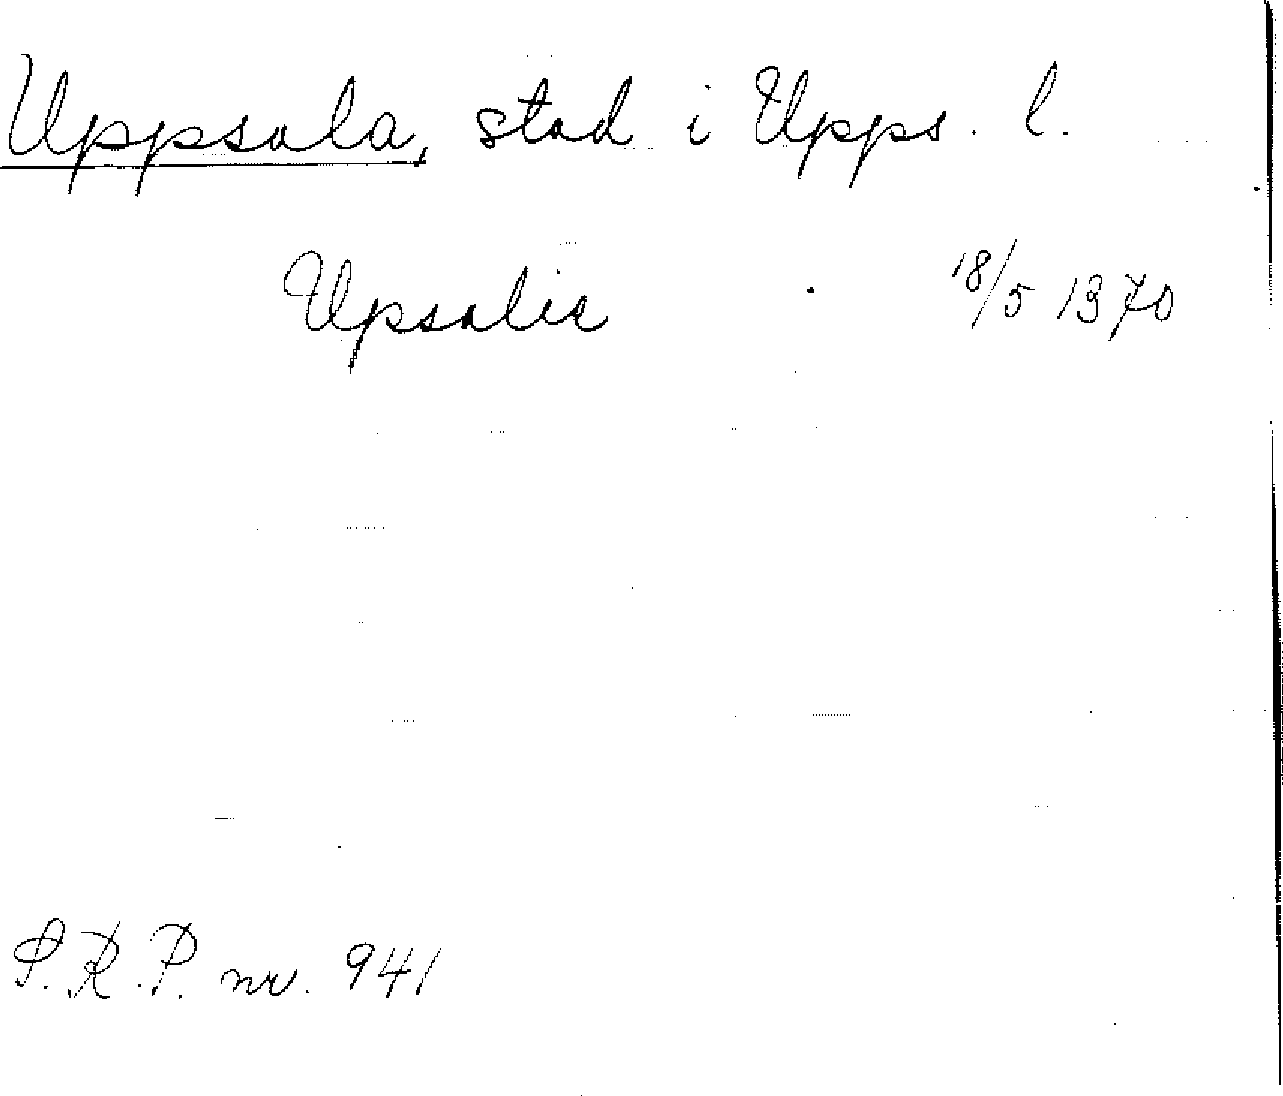 Uppsala, stad i Upps. l.
Upsalie 18/5 1370
S.R.P. nr. 941